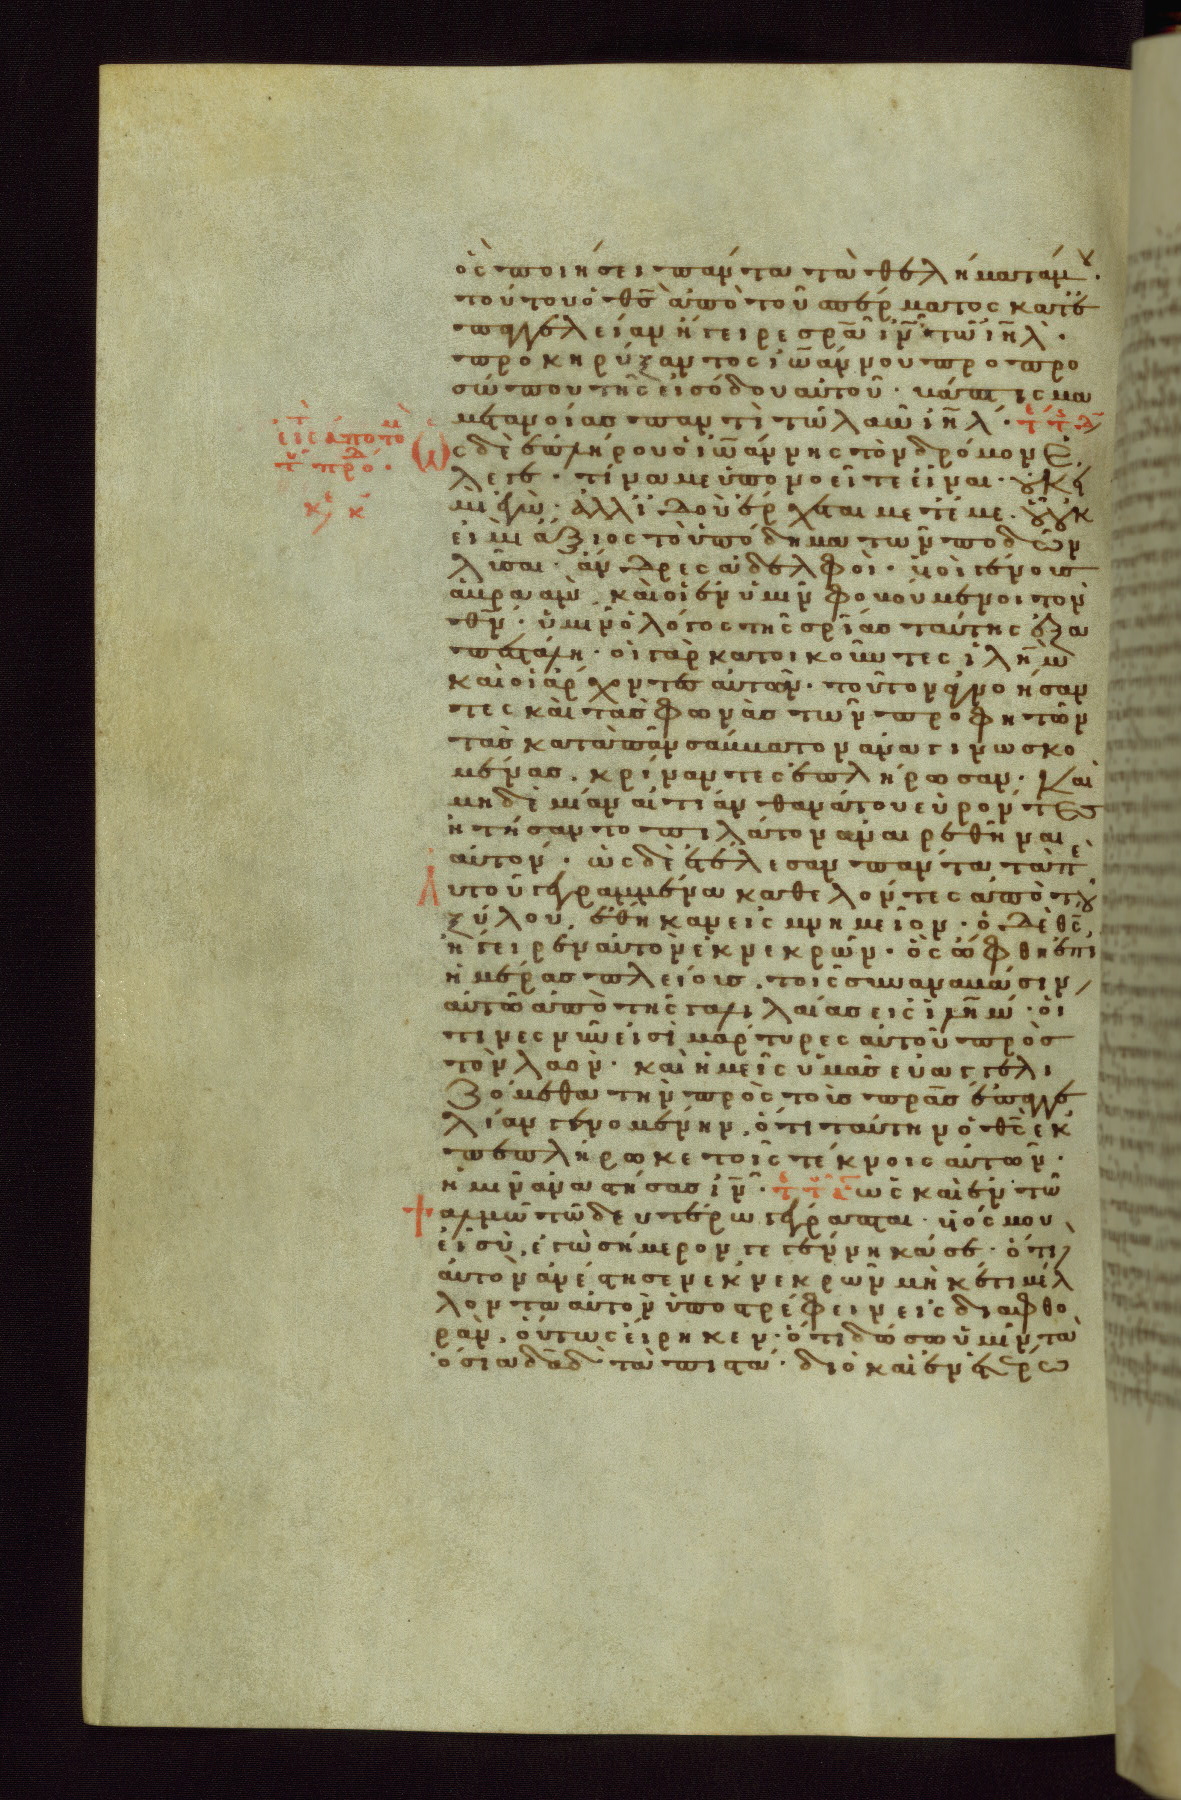 ὃς ποιήσει πάντα τὰ θελήματά μου.
τούτου ὁ θς ἀπὸ τοῦ σπέρματος κατ' ἐ
παγγελείαν ἤγειρε σρᾱ ιν τῶ ιηλ.
προκηρύξαντος ἰωάννου προ προ
σώπου τῆς εἰσόδου αὐτοῦ. βάπτισμα
μετανοίας παντὶ τῶ λαῶ ιηλ.
Ως δὲ ἐπλήρου ὁ ἰωάννης τὸν δρόμον ἔ
λεγε. τίνα με ὑπονοεῖτε εἶναι. οὐκ
εἰμὶ ἐγὼ. ἀλλ' ἰδοὺ ἔρχεται μετ' ἐμὲ. οὗ οὐκ
εἰμὶ ἄξιος τὸ ὑπόδημα τῶν ποδῶν
λῦσαι. ἄνδρες ἀδελφοὶ. υἱοὶ γένους
ἀβρααμ. καὶ οἱ ἐν ὑμῖν φοβούμενοι τὸν
θν. ὑμῖν ὁ λόγος τῆς σρίας ταύτης ἐξα
πεστάλη. οἱ γὰρ κατοικοῦντες ιλημ
καὶ οἱ ἄρχοντες αὐτῶν. τοῦτον ἀγνοήσαν
τες καὶ τὰς φωνὰς τῶν προφητῶν
τὰς κατὰ πᾶν σάββατον ἀναγινωσκο
μένας. κρίναντες ἐπλήρωσαν. καὶ
μηδὲ μίαν αἰτίαν θανάτου εὑρόντες
ἠτήσαντο πιλάτον ἀναιρεθῆναι
αὐτόν. ὡς δὲ ἐτέλεσαν πάντα τὰ πε
ρὶ αὐτοῦ γεγραμμένα καθελόντες ἀπὸ τοῦ
ξύλου, ἔθηκαν εἰς μνημεῖον. ὁ δὲ θς
ἤγειρεν αὐτὸν ἐκ νεκρῶν. ὃς ὤφθη ἐπὶ
ἡμέρας πλείους. τοῖς συναναβᾶσιν
αὐτῶ ἀπὸ τῆς γαλιλαίας εἰς ιλημ. οἵ
τινες νῦν εἰσὶ μάρτυρες αὐτοῦ πρὸς
τὸν λαὸν. καὶ ἡμεῖς ὑμᾶς εὐαγγελι
ζόμεθα τὴν πρὸς τοὺς πρᾱς ἐπαγγε
λίαν γενομένην, ὅτι ταύτην ὁ θς ἐκ
πεπλήρωκε τοῖς τέκνοις αὐτῶν.
ἡμῖν ἀναστήσας ιν. ὡς καὶ ἐν τῶ
ψαλμῶ τῶ δευτέρω γέγραπται. υἱός μου
εἶ σὺ, ἐγὼ σήμερον γεγέννηκά σε. ὅτι
αὐτὸν ἀνέστησεν ἐκ νεκρῶν μηκέτι μέλ
λοντα αὐτὸν ὑποστρέφειν εἰς διαφθο
ράν, οὕτως εἴρηκεν. ὅτι δώσω ὑμῖν τὰ
ὅσια δᾱδ τὰ πιστά. διὸ καὶ ἐν ἑτέρω